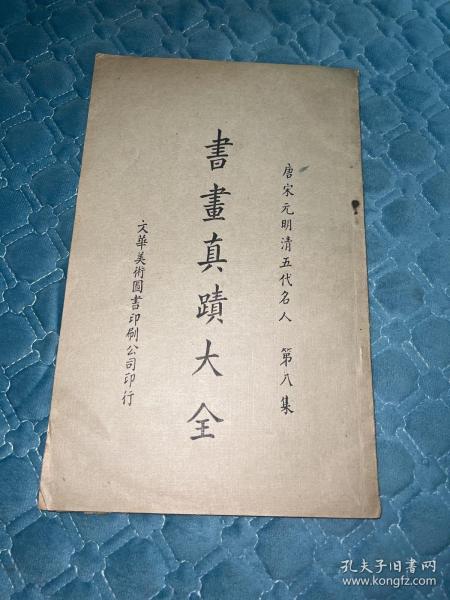 唐宋元明清五代名人 第八集
書畫真蹟大全
文華美術圖書印刷公司印行
孔夫子旧书网
www.kongfz.com